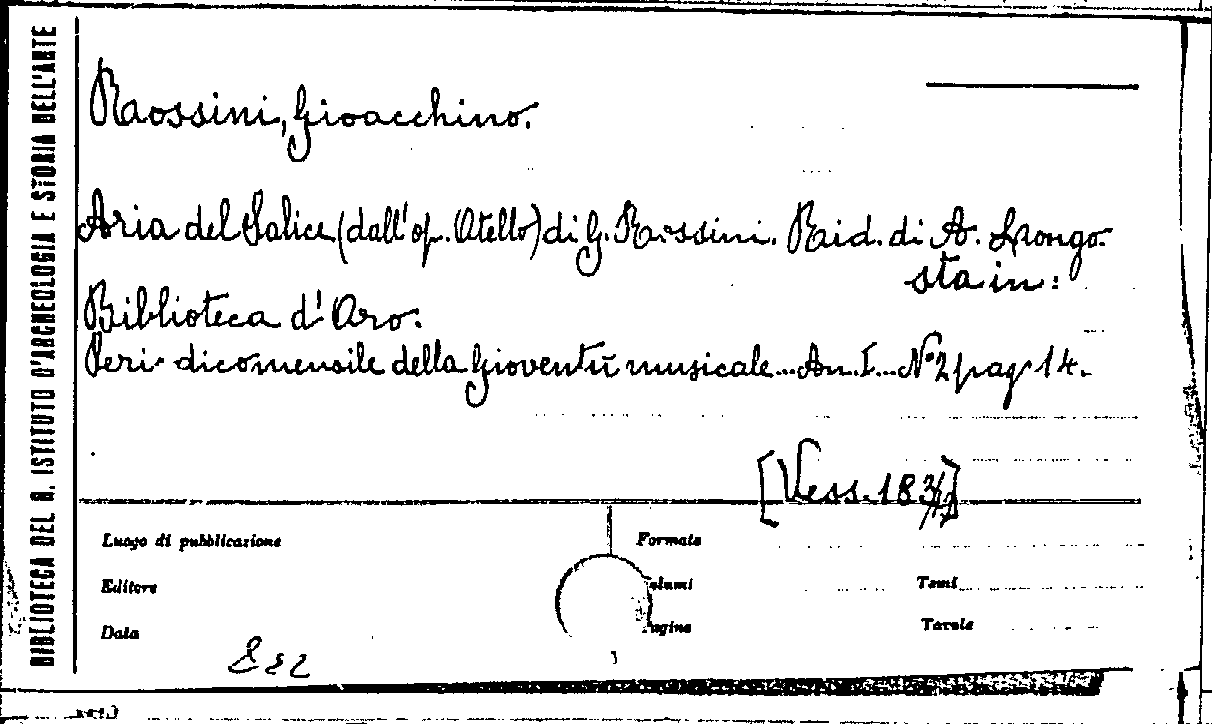 BIBLIOTECA DEL R. ISTITUTO D'ARCHEOLOGIA E STORIA DELL'ARTE
Rossini, Gioacchino.
Aria del Salice (dall'op. Otello) di G. Rossini. Rid. di A. Longo.
sta in:
Biblioteca d'Oro.
Peri- dico mensile della Gioventù musicale... An. I... N° 2 pag 14.
[Vess. 183/12]
Luogo di pubblicazione
Formato
Editore
olumi
Tomi
Data
agine
Tavole